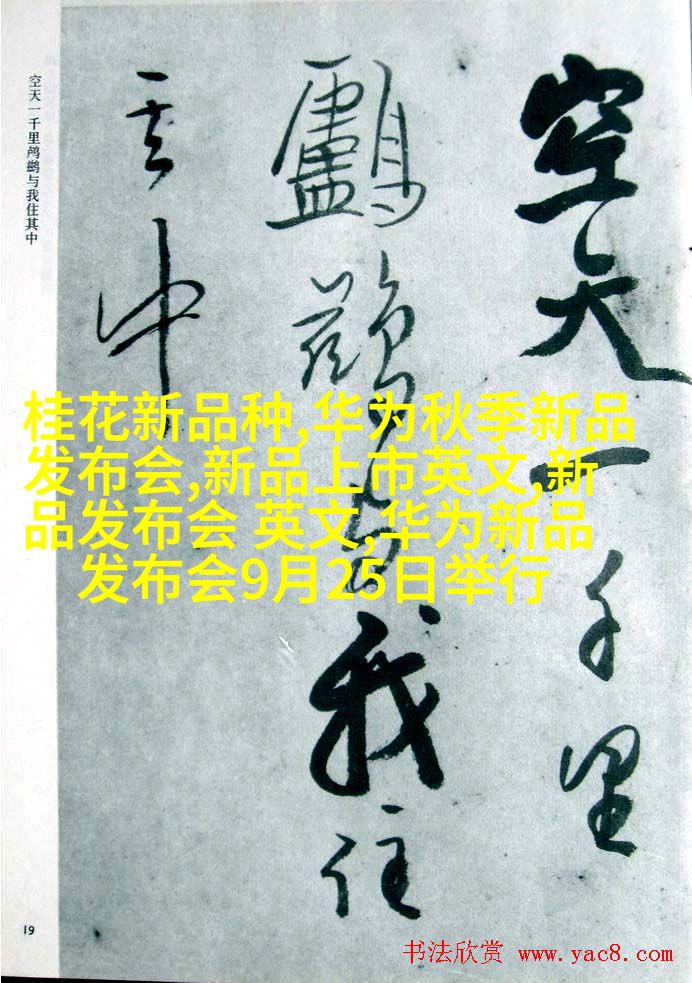 空天一千里
鸕鷀与我住
其中
空天一千里鸬鹚与我住其中
桂花新品种,华为秋季新品
发布会,新品上市英文,新
品发布会 英文,华为新品
发布会9月25日举行
19
书法欣赏 www.yac8.com